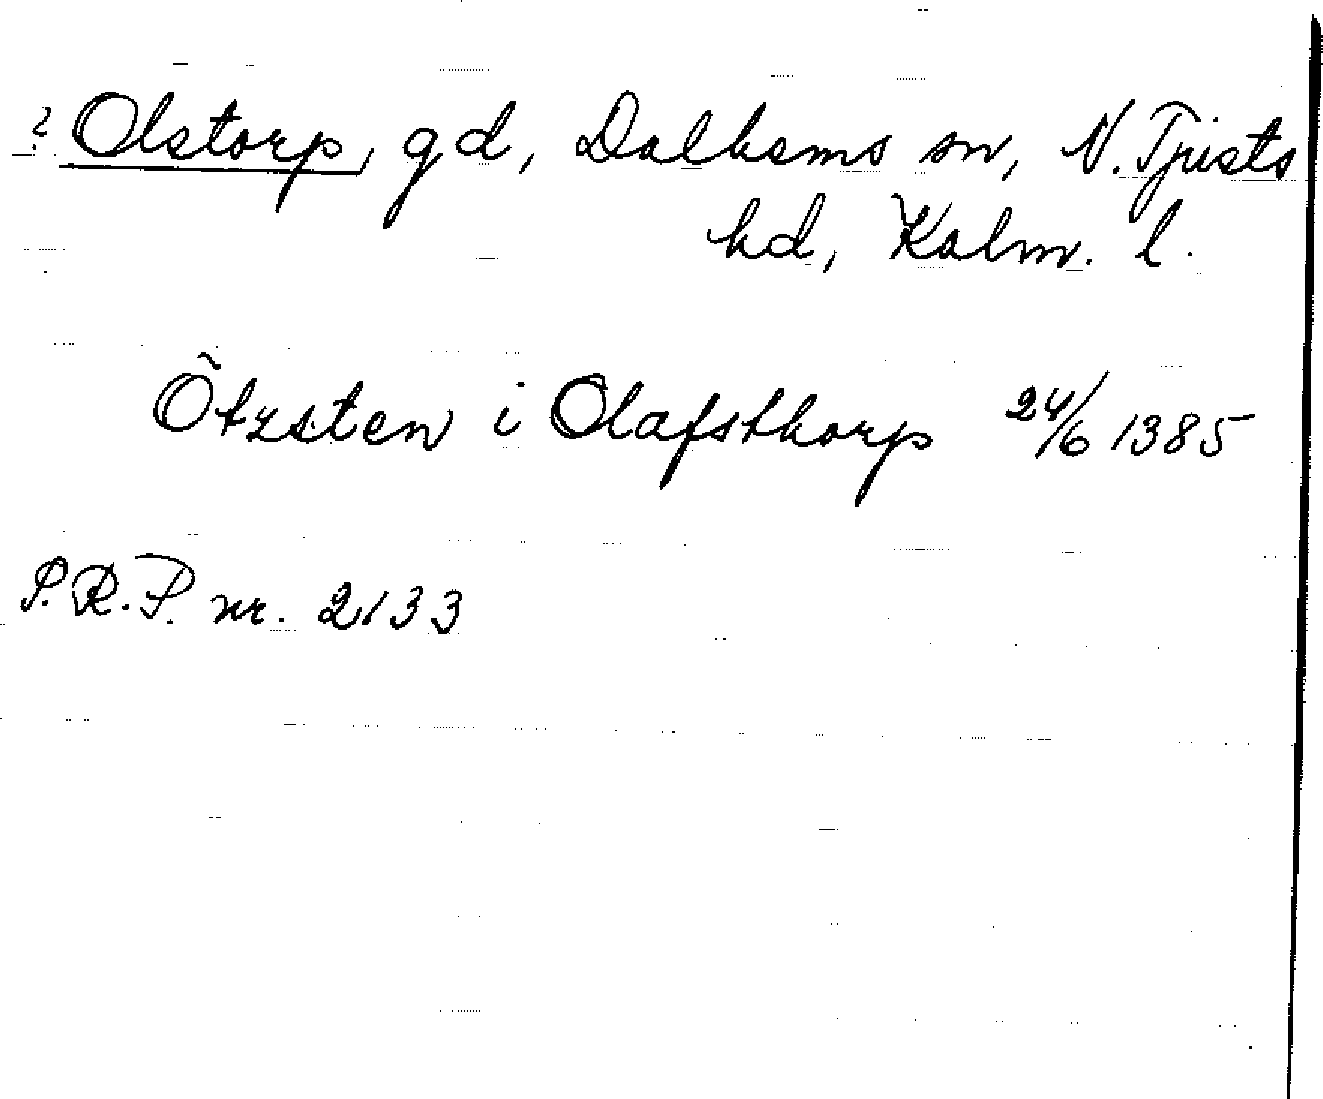 ? Olstorp, gd, Dalhems sn, N. Tjusts
hd, Kalm. l.
Õtzsten i Olafsthorp 24/6 1385
S.R.P. nr. 2133